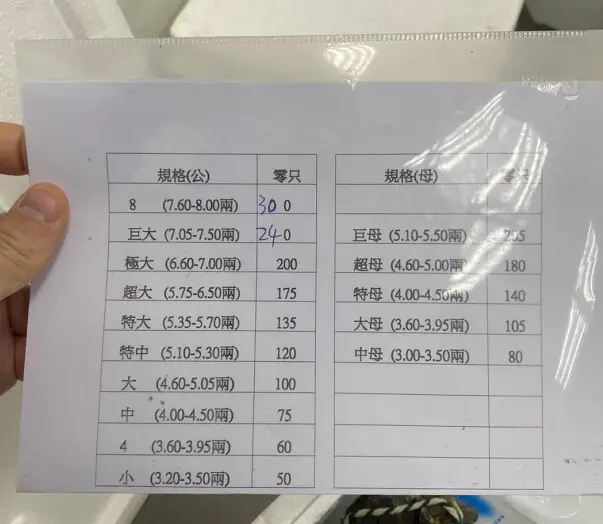 規格(公) 零只
8 (7.60-8.00兩) 300
巨大 (7.05-7.50兩) 240
極大 (6.60-7.00兩) 200
超大 (5.75-6.50兩) 175
特大 (5.35-5.70兩) 135
特中 (5.10-5.30兩) 120
大 (4.60-5.05兩) 100
中 (4.00-4.50兩) 75
4 (3.60-3.95兩) 60
小 (3.20-3.50兩) 50
規格(母) 零只
巨母 (5.10-5.50兩)
超母 (4.60-5.00兩) 180
特母 (4.00-4.50兩) 140
大母 (3.60-3.95兩) 105
中母 (3.00-3.50兩) 80